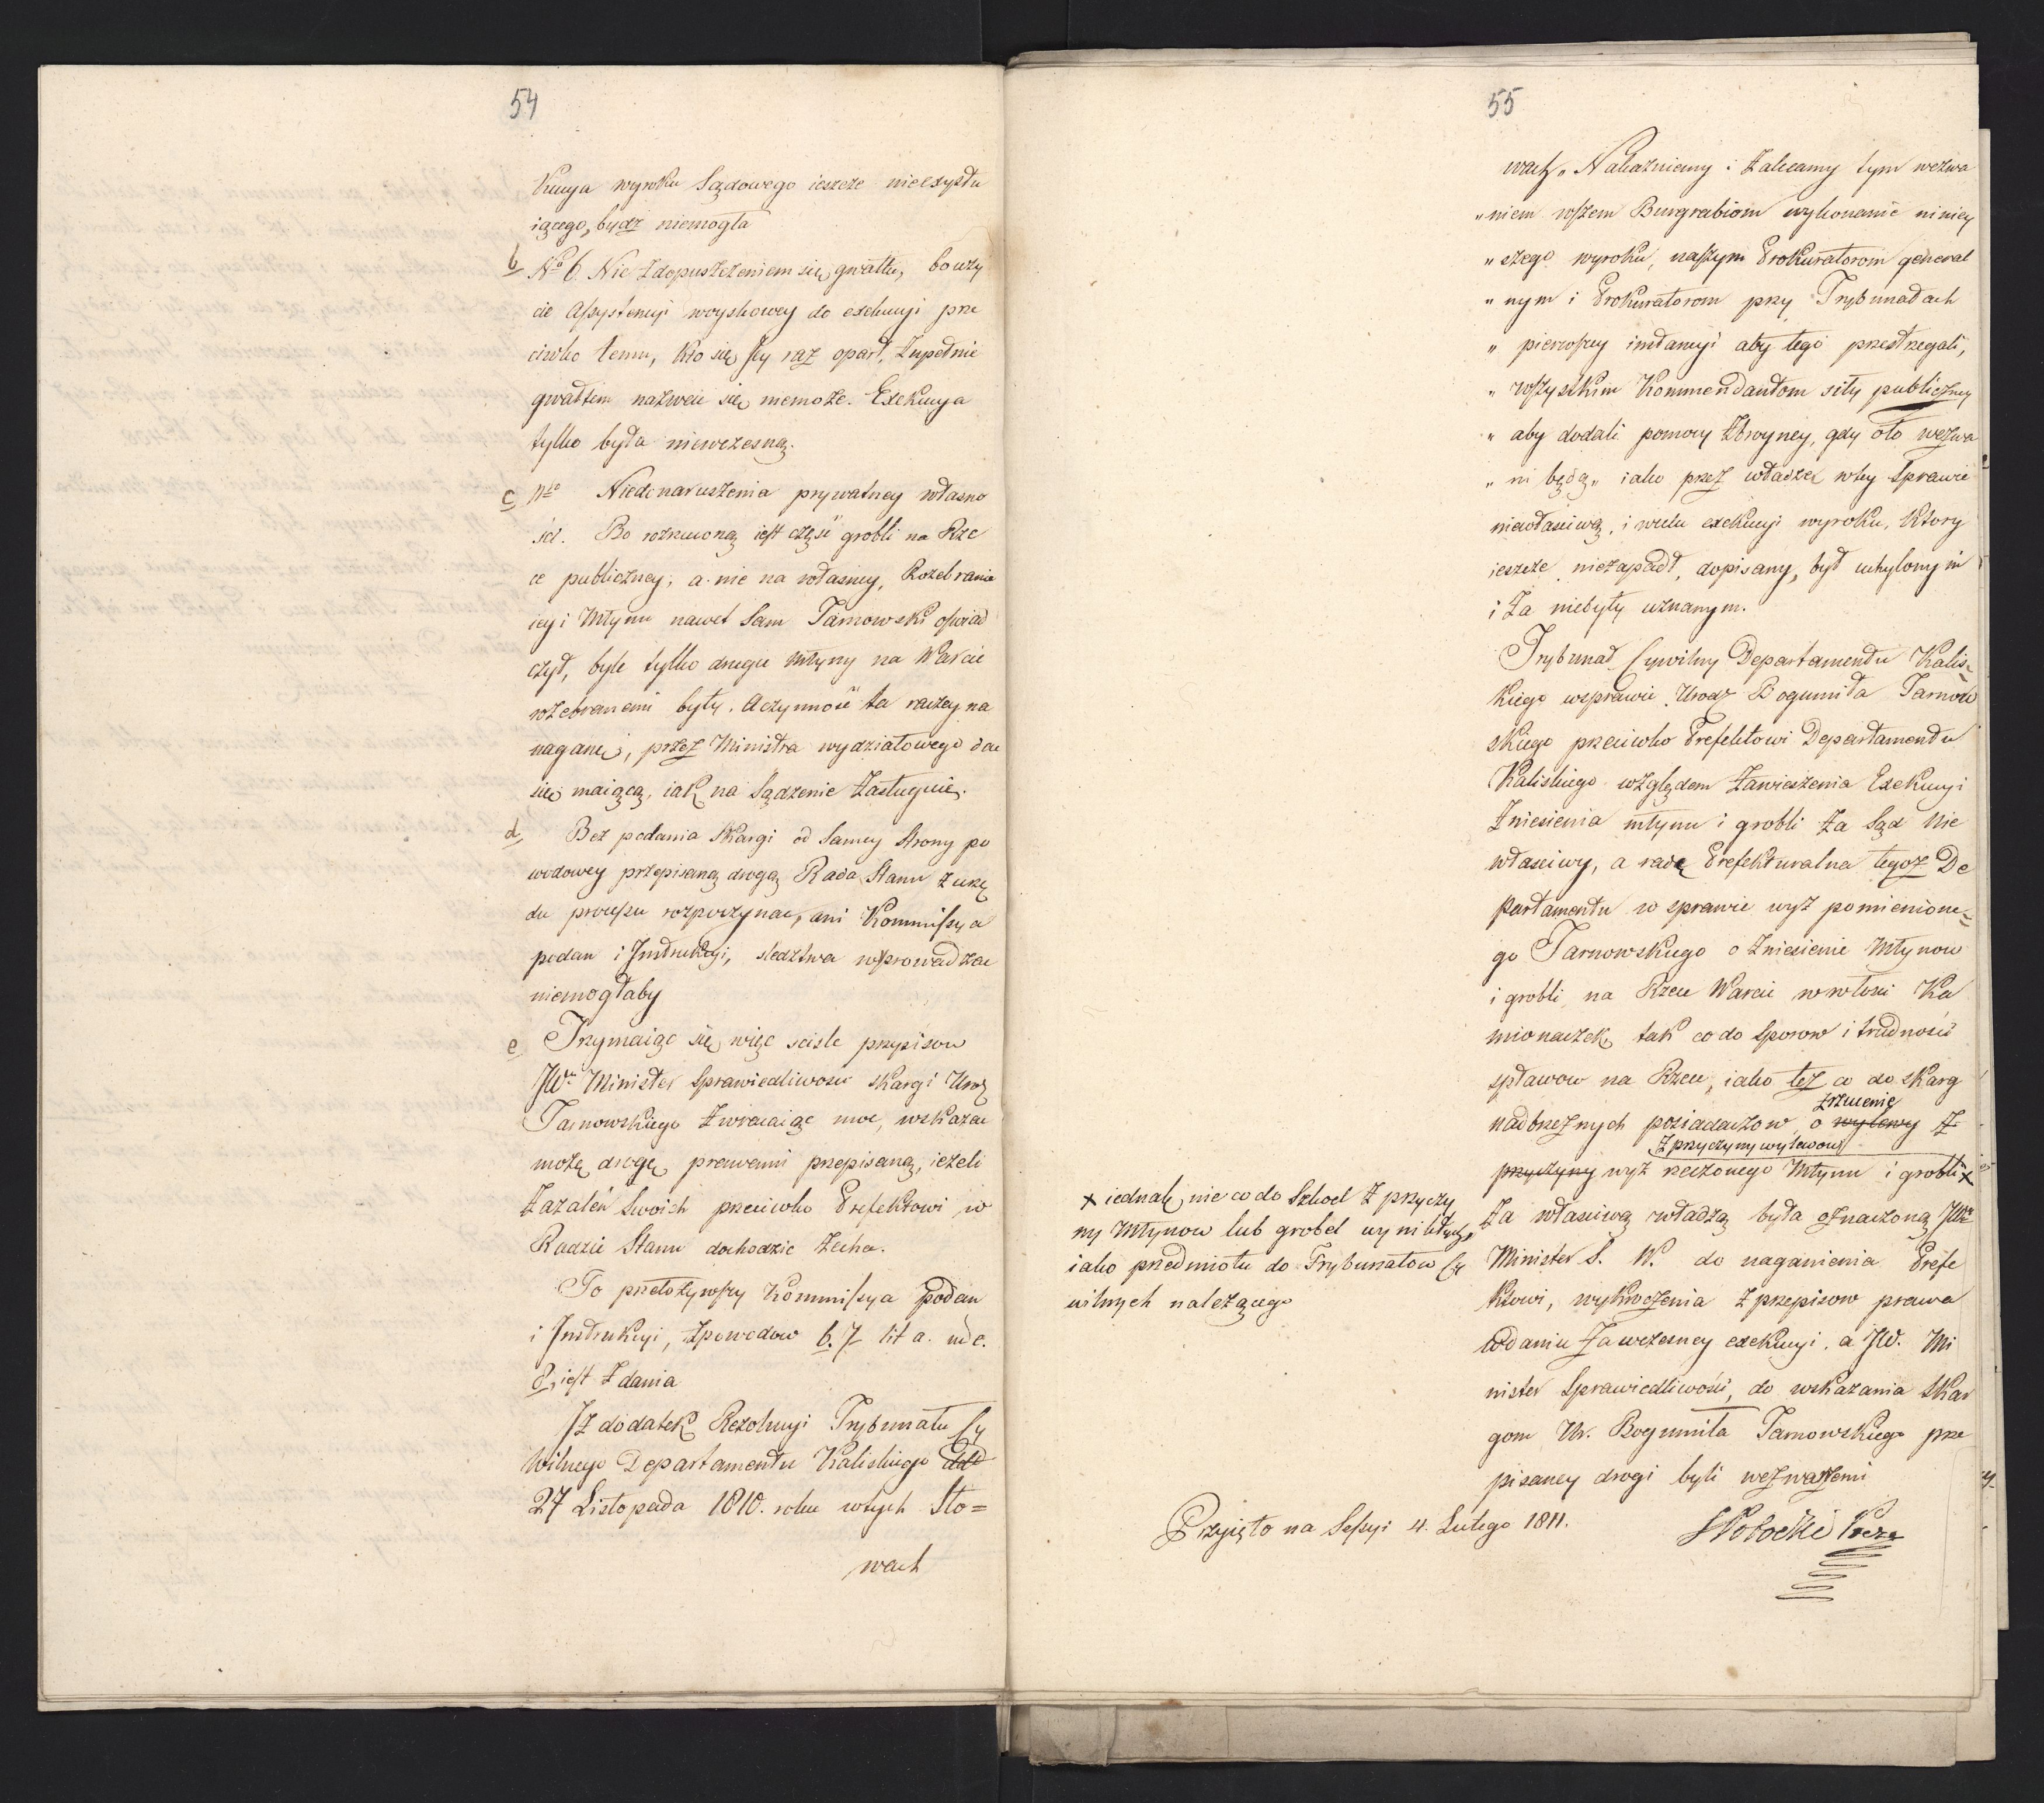 54
kucya wyroku Sądowego ieszcze nieexystu
iącego, bydz niemogła
b N<sup>o</sup> 6. Nie zdopuszczeniem się gwałtu, bo uży
cie Assystencyi woyskowey do exekucyi prze
ciwko temu, kto się iey raz oparł, zupełnie
gwałtem nazwać się niemoże. Exekucya
tylko była niewczesną.
c N<sup>o</sup> Niedonaruszenia prywatney własno
ści. Bo rozrzuconą iest część grobli na Rze
ce publiczney, a nie na własney, Rozebranie
iey i Młynu nawet Sam Tarnowski oświad
czył, byle tylko drugie młyny na Warcie
rozebranemi były. Aczynność ta raczey na
naganę, przez Ministra wydziałowego dac
się maiącą, iak na Sądzenie Zasługuie.
d, Bez podania Skargi od Samey Strony po
wodowey przepisaną drogą Rada Stanu z urzę
du processu rozpoczynac, ani Kommissya
podan i Instrukcyi, sledztwa wyprowadzac
niemogłaby
e Trzymaiąc się więc scisle przepisow
JW<sup>n</sup> Minister Sprawiedliwosci Skargi Uro<sup>z</sup>
Tarnowskiego zwracaiąc mu, wskazac
może drogę prawami przepisaną, ieżeli
Zazaleń Swoich przeciwko Prefektowi w
Radzie Stanu dochodzic zechce.
To przełożywszy Kommissya podan
i Instrukcyi, z powodow 6. 7. lit a. ... e.
8, iest zdania
Iż dodatek Rezolucyi Trybunału Cy
wilnego Departamentu Kaliskiego ddo
27 Listopada 1810. roku wtych Sło=
wach
55
wach „Nakazuiemy i Zalecamy tym wezwa
„niem wszem Burgrabiom wykonanie niniey
„szego wyroku, naszym Prokuratorom general
„nym i Prokuratorom przy Trybunałach
„pierwszey instancyi aby tego przestrzegali,
„wszystkim Kommendantom siły publiczney
„aby dodali pomocy zbroyney, gdy oto wezwa
„ni będą„ iako przez władzę wtey Sprawie
niewłasciwą, i wcelu exekucyi wyroku, ktory
ieszcze niezapadł, dopisany, był uchylonym
i za niebyły uznanym.
Trybunał Cywilny Departamentu Kalis=
kiego wsprawie Urodz Bogumiła Tarnow
skiego przeciwko Prefektowi Departamentu
Kaliskiego względem Zawieszenia Exekucyi
Zniesienia młynu i grobli za Sąd nie
właściwy, a radę Prefekturalna tegoz De
partamentu w sprawie wyż pomienione=
go Tarnowskiego o Zniesienie Młynow
i grobli na Rzece Warcie w włosci Ka
mionaczek, tak co do Sporow i trudności
spławow na Rzece, iako też co do skarg
nadbrzeżnych posiadaczow o ~~wylewy~~ zrzucenie ~~z~~
~~przyczyny~~ z przyczyny wylewow wyż rzeczonego Młynu i grobli x
Za własciwą władzą była oznaczoną JW<sup>n</sup>
Minister S. W. do naganienia Prefe
ktowi, wykroczenia z przepisow prawa
wdaniu Zawczesney exekucyi, a JW. Mi
nister Sprawiedliwości, do wskazania Skar
gom Ur. Bogumiła Tarnowskiego prze
pisaney drogi byli wezwanemi
x iednak, nie co do Szkod z przyczy
ny Młynow lub grobel wynikłych,
iako przedmiotu do Trybunałow Cy
wilnych należącego
Przyięto na Sessyi 4. Lutego 1811.